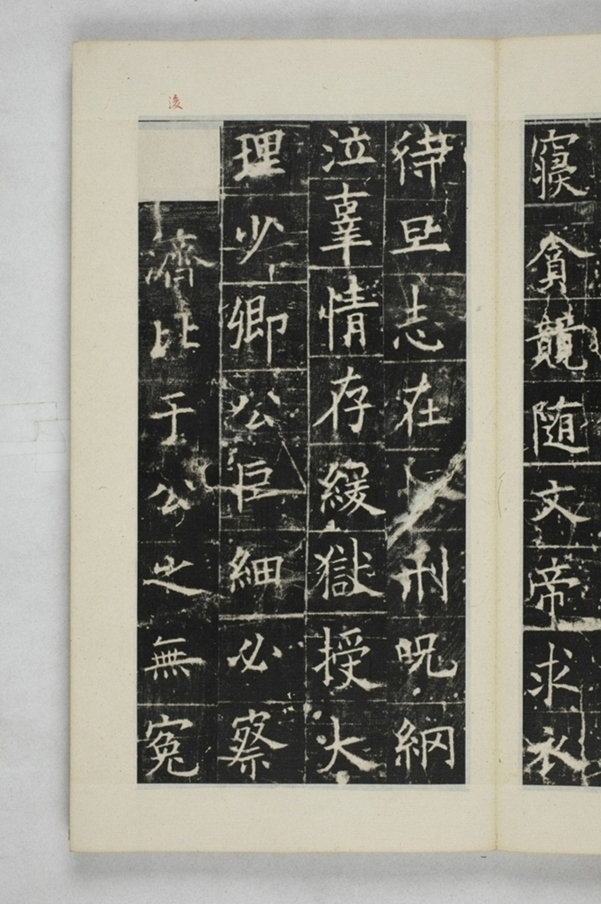 寢貪競随文帝求衣
待旦志在刑呪網
泣辜情存緩獄授大
理少卿公巨細必察
濟比于公之無冤